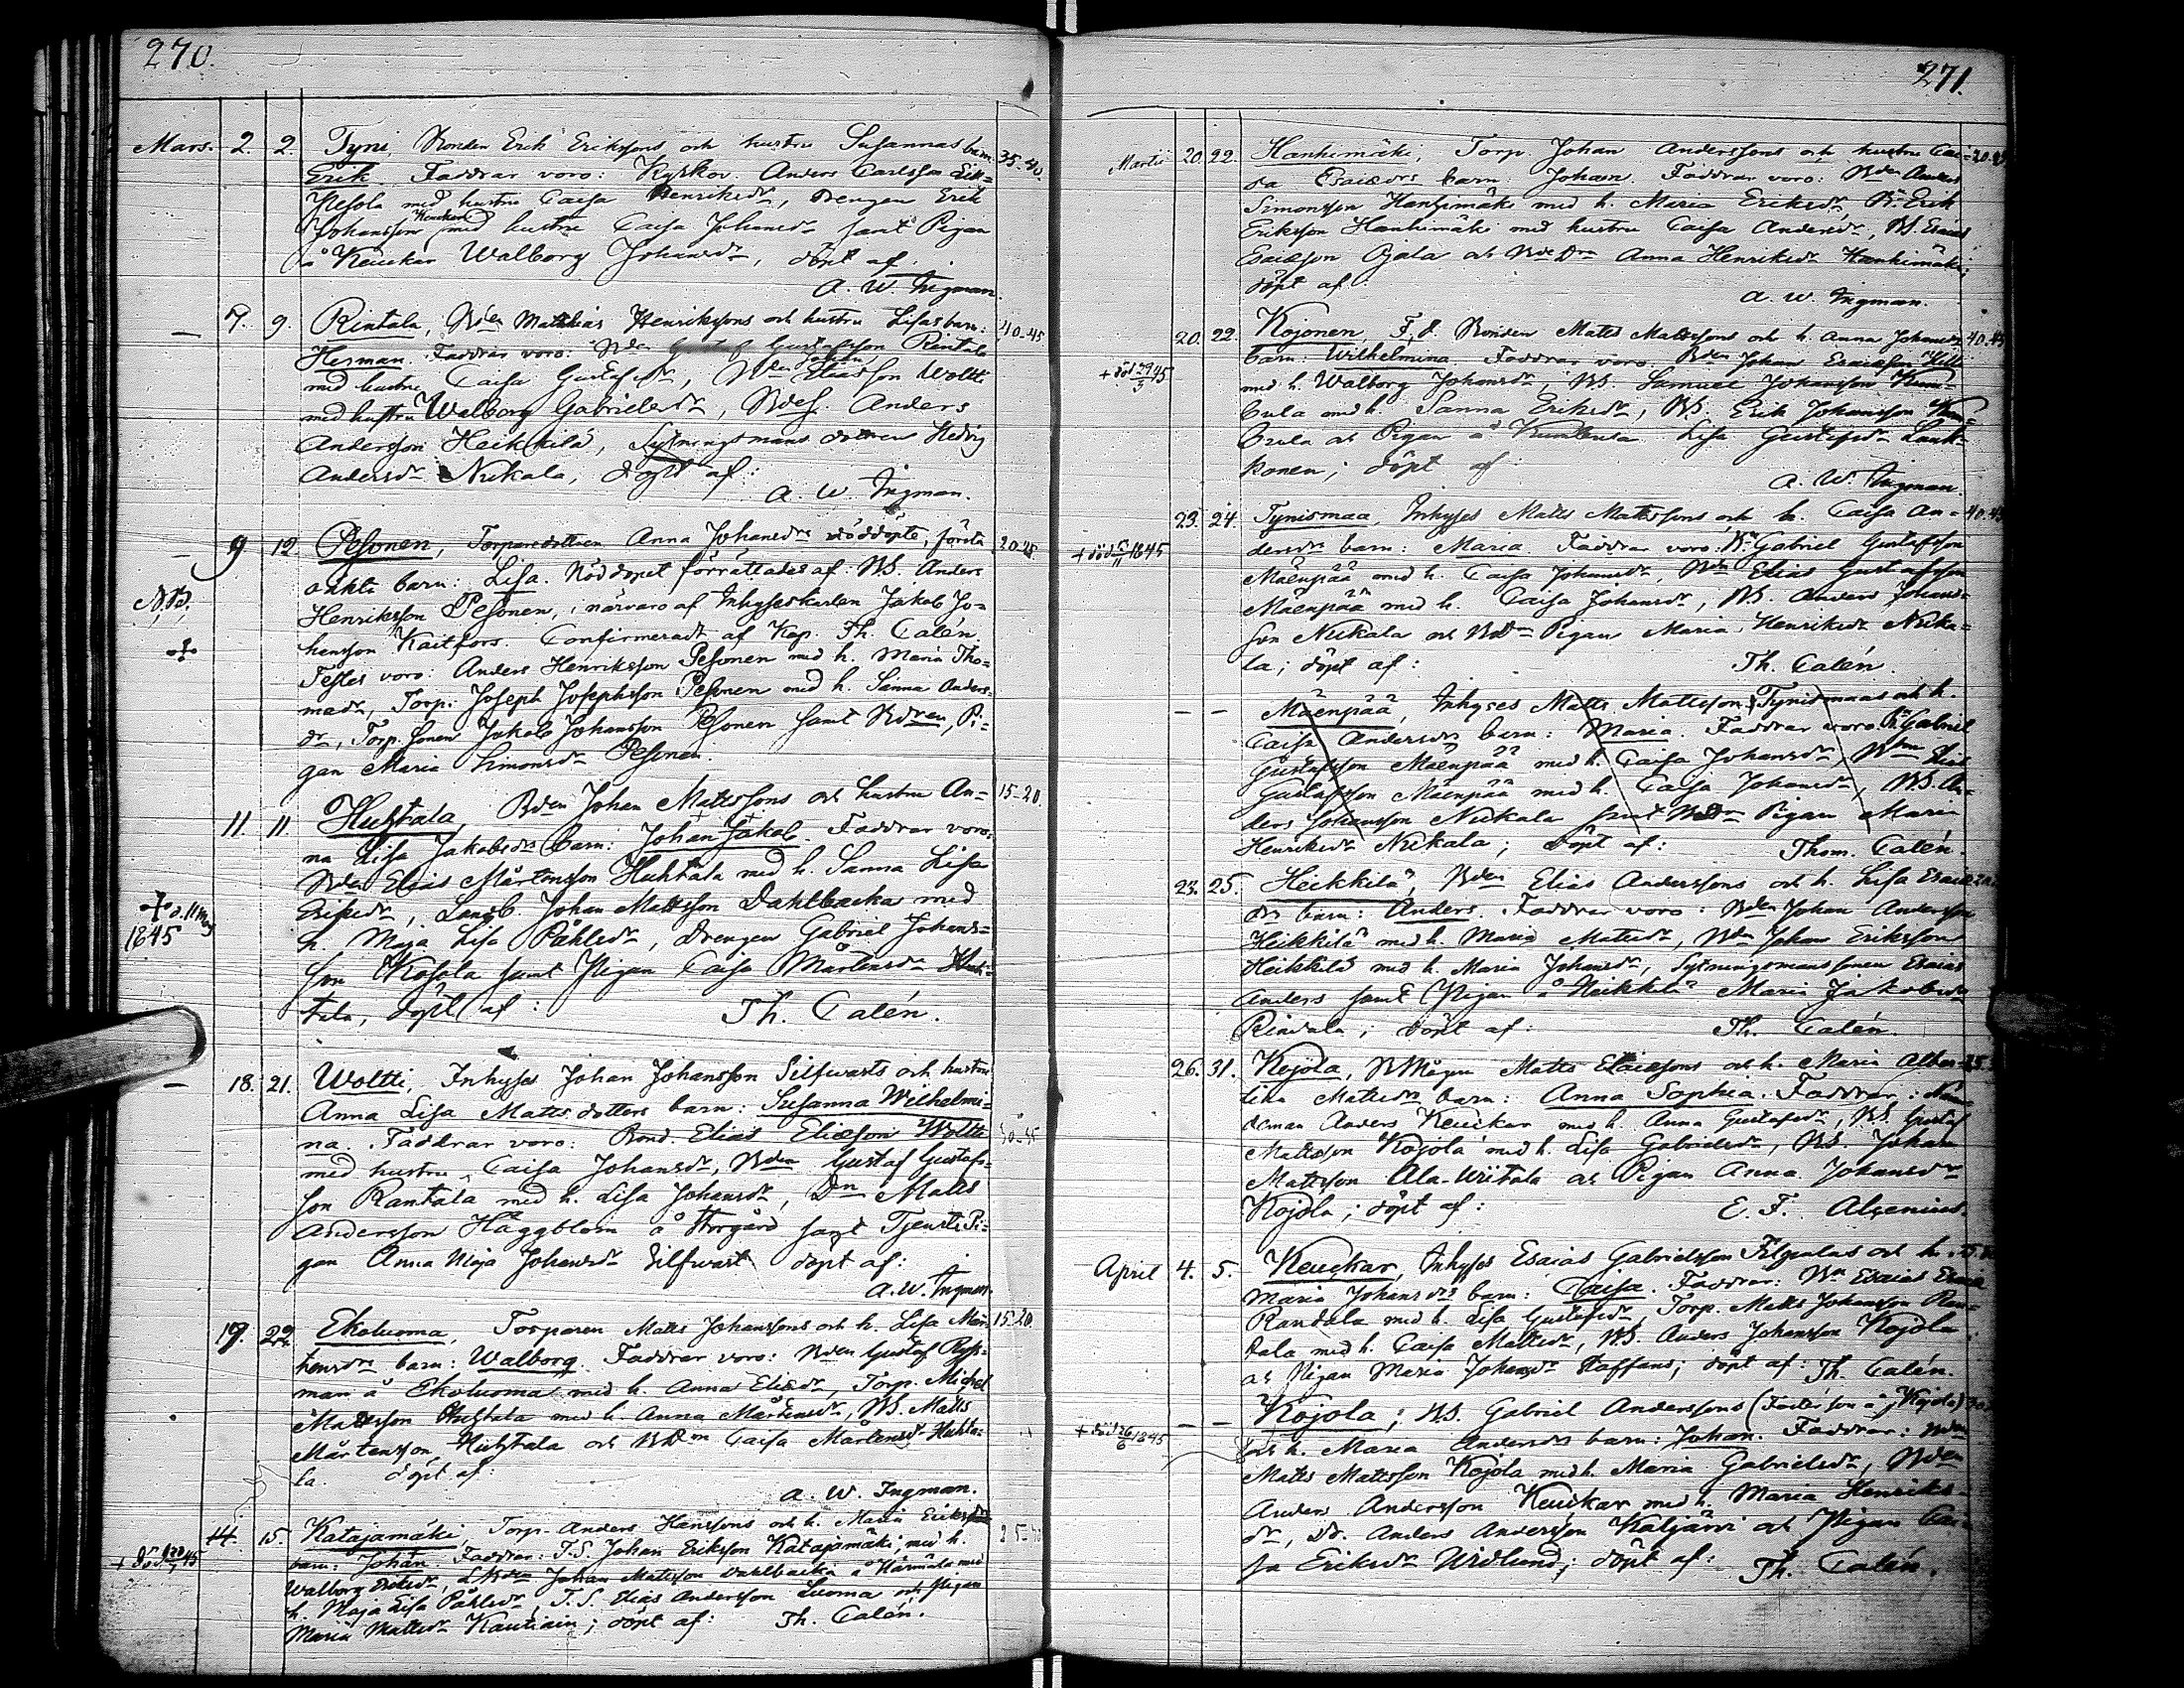 270.
Mars. 2. 2. Tyni, Bonden Erik Erikssons och hustru Susannas barn: 35-40.
Erik. Faddrar voro: Kyrkov. Anders Carlsson
Pesola med hustru Caisa Henriksdr, Drengen Erik
Johansson Keuckar med hustru Caisa Johansdr samt Pigan
å Keuckar Walborg Johansdr, döpt af.
A. W. Ingman.
— 7. 9. Rintala, Bden Matthias Henrikssons och hustru Lisas barn: 40-45
Herman. Faddrar voro: Bden Gustafsson Rintala
med hustru Caisa Gustafsdr, Bden Johan Eliasson Woltti
med hustru Walborg Gabrielsdr, Bdes. Anders
Andersson Heikkilä, Sytningsmans dottren Hedvig
Andersdr Nukala, döpt af:
A. W. Ingman.
— 9 12 Pesonen, Torparedottren Anna Johansdrs nöddöpte, första 20-25
oäkta barn: Lisa. Nöddopet förrättades af: BS. Anders
N.B. Henriksson Pesonen, i närvaro af Inhyseskarlen Jakob Jo-
hansson Kaitfors. Confirmeradt af Kap. Th. Calén.
Testes voro: Anders Henriksson Pesonen med h. Maria Tho-
masdr, Torp. Joseph Josephsson Pesonen med h. Sanna Anders-
dr, Torp. Sonen Jakob Johansson Pesonen samt Bdren, Pi-
gan Maria Simonsdr Pesonen.
11. 11 Huhtala, Bden Johan Mattssons och hustru An- 15-20.
na Lisa Jakobsdrs barn: Johan Jakob. Faddrar voro:
Bden Elias Mårtensson Huhtala med h. Sanna Lisa
+ d. 11 Maj Eriksdr, Landb. Johan Mattsson Dahlbacka med
1845 h. Maja Lisa Påhlsdr, Drengen Gabriel Johans-
son Kojola samt Pigan Caisa Mårtensdr Huh-
tala, döpt af: Th. Calén.
— 18. 21. Woltti, Inhyses Johan Johansson Silfwasts och hustru
Anna Lisa Mattsdotters barn: Susanna Wilhelmi-
na. Faddrar voro: Bond. Elias Eliasson Woltti 40-45
med hustru Caisa Johansdr, Bden Gustaf Gustafs-
son Rantala med h. Lisa Johansdr, Dn Matts
Andersson Häggblom å Storgård samt Tjenste Pi-
gan Anna Maja Johansdr Silfwast döpt af:
A. W. Ingman.
19. 22. Ekoluoma, Torparen Matts Johanssons och h. Lisa Mår- 15-20.
tensdrs barn: Walborg. Faddrar voro: Bden Gustaf
man å Ekoluoma med h. Anna Eliedr, Torp. Michel
Mattsson Huhtala med h. Anna Mårtensdr, BS. Matts
Mårtensson Huhtala och BDn Caisa Mårtensdr Huhta-
la. döpt af:
A. W. Ingman.
14. 15. Katajamäki, Torp. Anders Hanssons och h. Maria Eriksdrs 25-30
+ död 45 barn: Johan. Faddrar: T.S. Johan Eriksson Katajamäki, med h.
Walborg Eriksdr, LBden Johan Mattsson Dahlbacka å Härmälä med
h. Maja Lisa Påhlsdr, T.S. Elias Andersson Luoma och Pigan
Maria Mattsdr Kautiain; döpt af: Th. Calén.
271.
Martii 20. 22. Hanhimäki, Torp. Johan Anderssons och hustru Cai- 20.25
sa Esaiaedrs barn: Johan. Faddrar voro: Bden Anders
Simonsson Hanhimäki med h. Maria Eriksdr, Bn Erik
Eriksson Hanhimäki med hustru Caisa Andersdr, BS. Esaias
Esaiasson Ojala och Bde Dn Anna Henriksdr Hanhimäki;
döpt af
A. W. Ingman.
20. 22. Kojonen, F. d. Bonden Matts Mattssons och h. Anna Johansdrs 40.45
+ död 29/5 45 barn: Wilhelmina. Faddrar voro: Bden Johan Esaiasson
med h. Walborg Johansdr, BS. Samuel Johansson Kum-
bula med h. Sanna Eriksdr, BS. Erik Johansson Kum-
bula och Pigan å Lisa Gustafsdr Lauk-
konen; döpt af:
A. W. Ingman.
23. 24. Tynismaa, Inhyses Matts Mattssons och h. Caisa An- 40.45
+ död 1845 dersdrs barn: Maria. Faddrar voro: Bn Gabriel Gustafsson
Mäenpää med h. Caisa Johansdr, Bden Elias Gustafsson
Mäenpää med h. Caisa Johansdr, BS. Anders Johans-
son Nukala och BdDn Pigan Maria Henriksdr Nuka-
la; döpt af: Th. Calén.
— — Mäenpää, Inhyses Matts Mattsson Tynismaas och h.
Caisa Andersdrs barn: Maria. Faddrar voro: Bn Gabriel
Gustafsson Mäenpää med h. Caisa Johansdr, Bden Elias
Gustafsson Mäenpää med h. Caisa Johansdr, BS. An-
ders Johansson Nukala samt BdDn Pigan Maria
Henriksdr Nukala; döpt af: Thom. Calén.
23. 25. Heikkilä, Bden Elias Anderssons och h. Lisa Esaiae
drs barn: Anders. Faddrar voro: Bden Johan Andersson
Heikkilä med h. Maria Mattsdr, Bden Johan Eriksson
Heikkilä med h. Maria Johansdr, Sytningsmans sonen Esaias
Anders samt Pigan å Heikkilä Maria Jakobsdr
Rindala; döpt af: Th. Calén.
26. 31. Kojola, BMågen Matts Esaiaessons och h. Maria Alber- 25.
tina Mattsdrs barn: Anna Sophia. Faddrar: Nämn-
deman Anders Keuckar med h. Anna Gustafsdr, BS. Gustaf
Mattsson Kojola med h. Lisa Gabrielsdr, BS. Johan
Mattsson Ala-Wiitala och Pigan Anna Johansdr
Kojola; döpt af: E. F. Alcenius.
April 4. 5. Keuckar, Inhyses Esaias Gabrielsson Filpulas och h.
Maria Johansdrs barn: Caisa. Faddrar: Bn Esaias
Randala med h. Lisa Gustafsdr, Torp. Matts Johansson Ran-
dala med h. Caisa Mattsdr, BS. Anders Johansson Kojola
och Pigan Maria Johansdr Staffans; döpt af: Th. Calén.
— — Kojola; BS. Gabriel Anderssons (Foster son å Kojola)
+ död 26/6 1845 och h. Maria Andersdrs barn: Johan. Faddrar: Bden
Matts Mattsson Kojola med h. Maria Gabrielsdr, Bden
Anders Andersson Keuckar med h. Maria Henriks-
dr, Dr. Anders Andersson Kaljärvi och Pigan Cai-
sa Eriksdr Widlund; döpt af: Th. Calén.